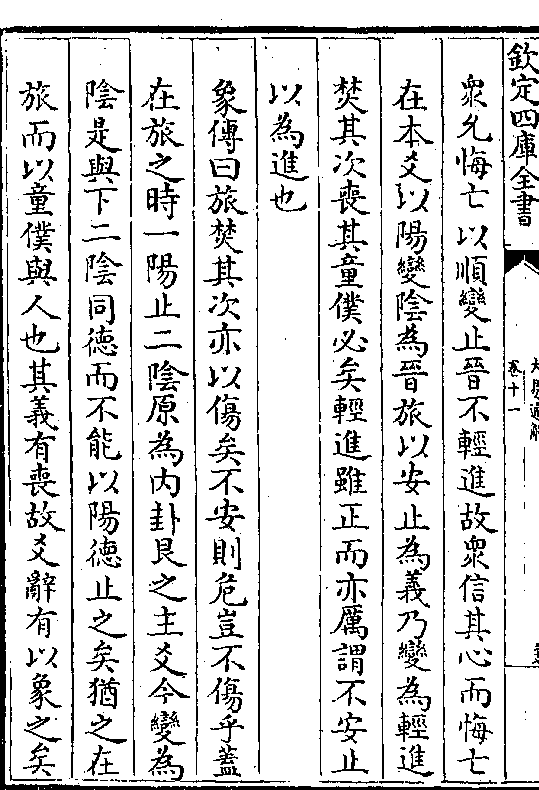 欽定四庫全書
卷十一
衆允悔亡以順變止晉不輕進故衆信其心而悔亡
在本爻以陽變陰為晉旅以安止為義乃變為輕進
焚其次喪其童僕必矣輕進雖正而亦厲謂不安止
以為進也
象傳曰旅焚其次亦以傷矣不安則危豈不傷乎蓋
在旅之時一陽止二陰原為内卦艮之主爻今變為
陰是與下二陰同德而不能以陽德止之矣猶之在
旅而以童僕與人也其義有喪故爻辭有以象之矣